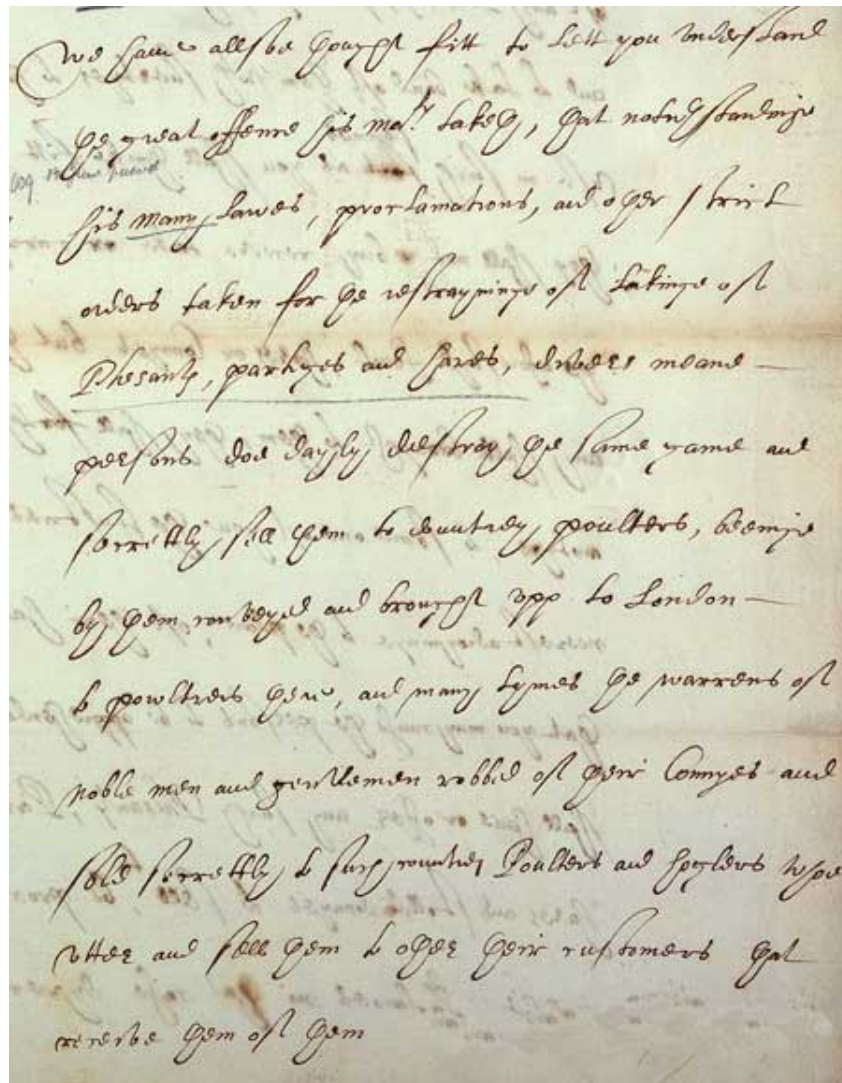 We have allsoe thought fitt to lett you understand
the great offence his Ma:ty taketh, that notwthstandinge
his many lawes, proclamations, and other strict
orders taken for the restrayninge of takinge of
Phesants, partryges and hares, divers meane
persons doe dayly destroy the same game and
secrettly sell them to countrey poulters, beeinge
by them conveyed and brought upp to London
to powlters here, and many tymes the warrens of
noble men and gentlemen robbed of their Connyes and
sold secrettly to such countrey Poulters and higlers whoe
utter and sell them to other their customers that
receive them of them